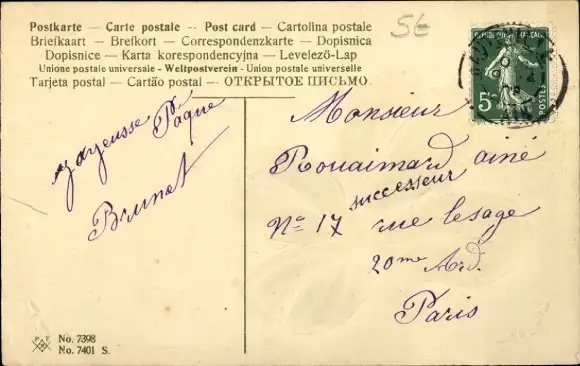 Postkarte – Carte postale – Post card – Cartolina postale
Briefkaart – Brefkort – Correspondenzkarte – Dopisnica
Dopisnice – Karta korespondencyjna – Levelező-Lap
Unione postale universale - Weltpostverein - Union postale universelle
Tarjeta postal – Cartão postal – ОТКРЫТОЕ ПИСЬМО.
5c
POSTES
5€
Joyeusse Pâque
Brunet
Monsieur
Rouaimard ainé
successeur
No 17 rue lesage
20me Ard.
Paris
No. 7398
No. 7401 S.